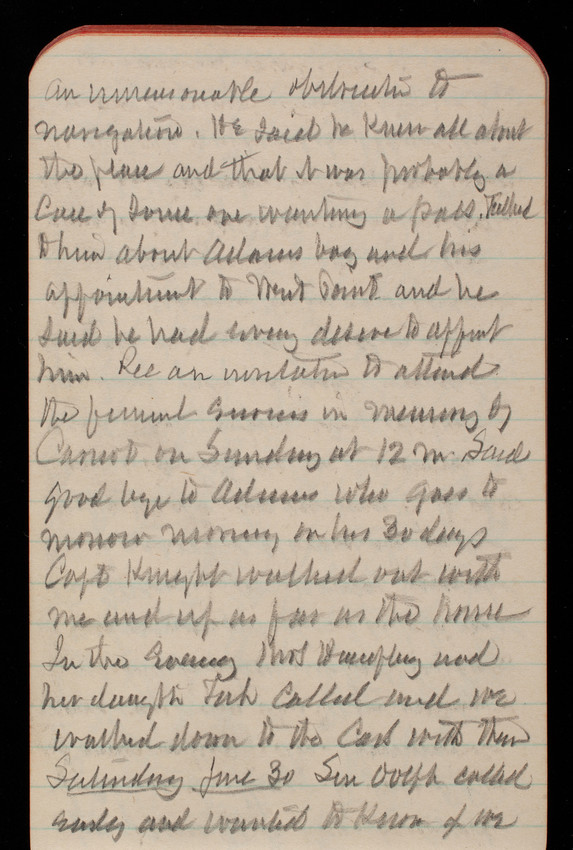 an unreasonable obstruction to
navigation. He said he knew all about
the place and that it was probably a
case of some one wanting a pass. Talked
to him about Adams boy and his
appointment to West Point and he
said he had every desire to appoint
him. Rec an invitation to attend
the funeral services in memory of
Carnot on Sunday at 12 m. Said
good bye to Adams who goes to
morrow morning on his 30 days
Capt Knight walked out with
me and up as far as the house
In the Evening Mrs and
her daught called and we
walked down to the Cars with them
Saturday June 30 Sen Dolph called
early and wanted to know if we